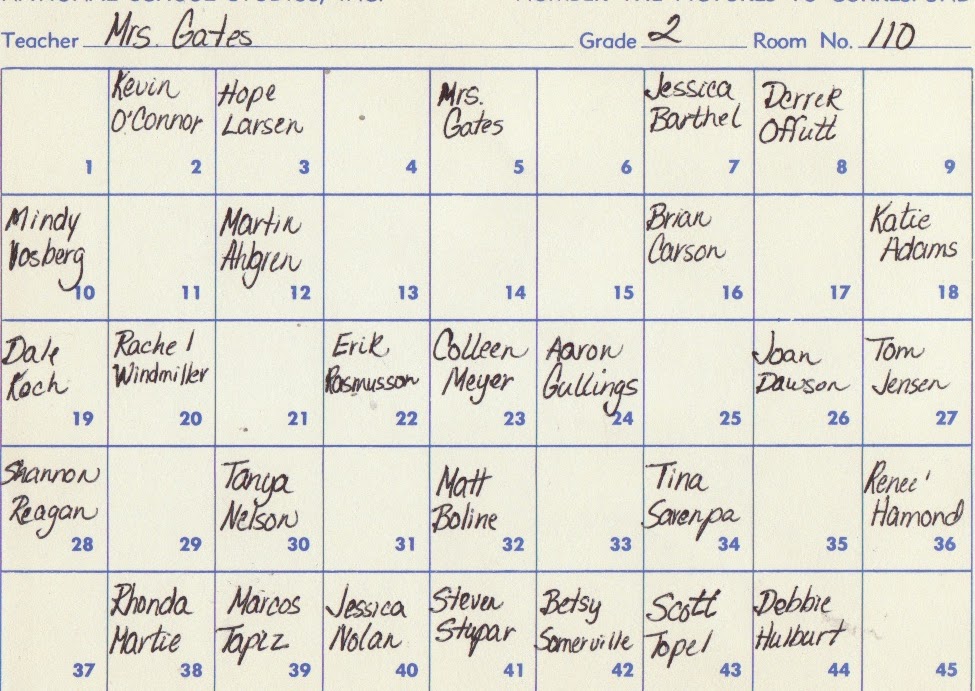 Teacher Mrs. Gates Grade 2 Room No. 110
Kevin
O'Connor
Hope
Larsen
Mrs.
Gates
Jessica
Barthel
Derrek
Offutt
1 2 3 4 5 6 7 8 9
Mindy
Vosberg
Martin
Ahlgren
Brian
Carson
Katie
Adams
10 11 12 13 14 15 16 17 18
Dale
Koch
Rachel
Windmiller
Erik
Rasmusson
Colleen
Meyer
Aaron
Gullings
Joan
Dawson
Tom
Jensen
19 20 21 22 23 24 25 26 27
Shannon
Reagan
Tanya
Nelson
Matt
Boline
Tina
Sarenpa
Renee'
Hamond
28 29 30 31 32 33 34 35 36
Rhonda
Martie
Marcos
Tapiz
Jessica
Nolan
Steven
Stupar
Betsy
Somerville
Scott
Topel
Debbie
Hulburt
37 38 39 40 41 42 43 44 45